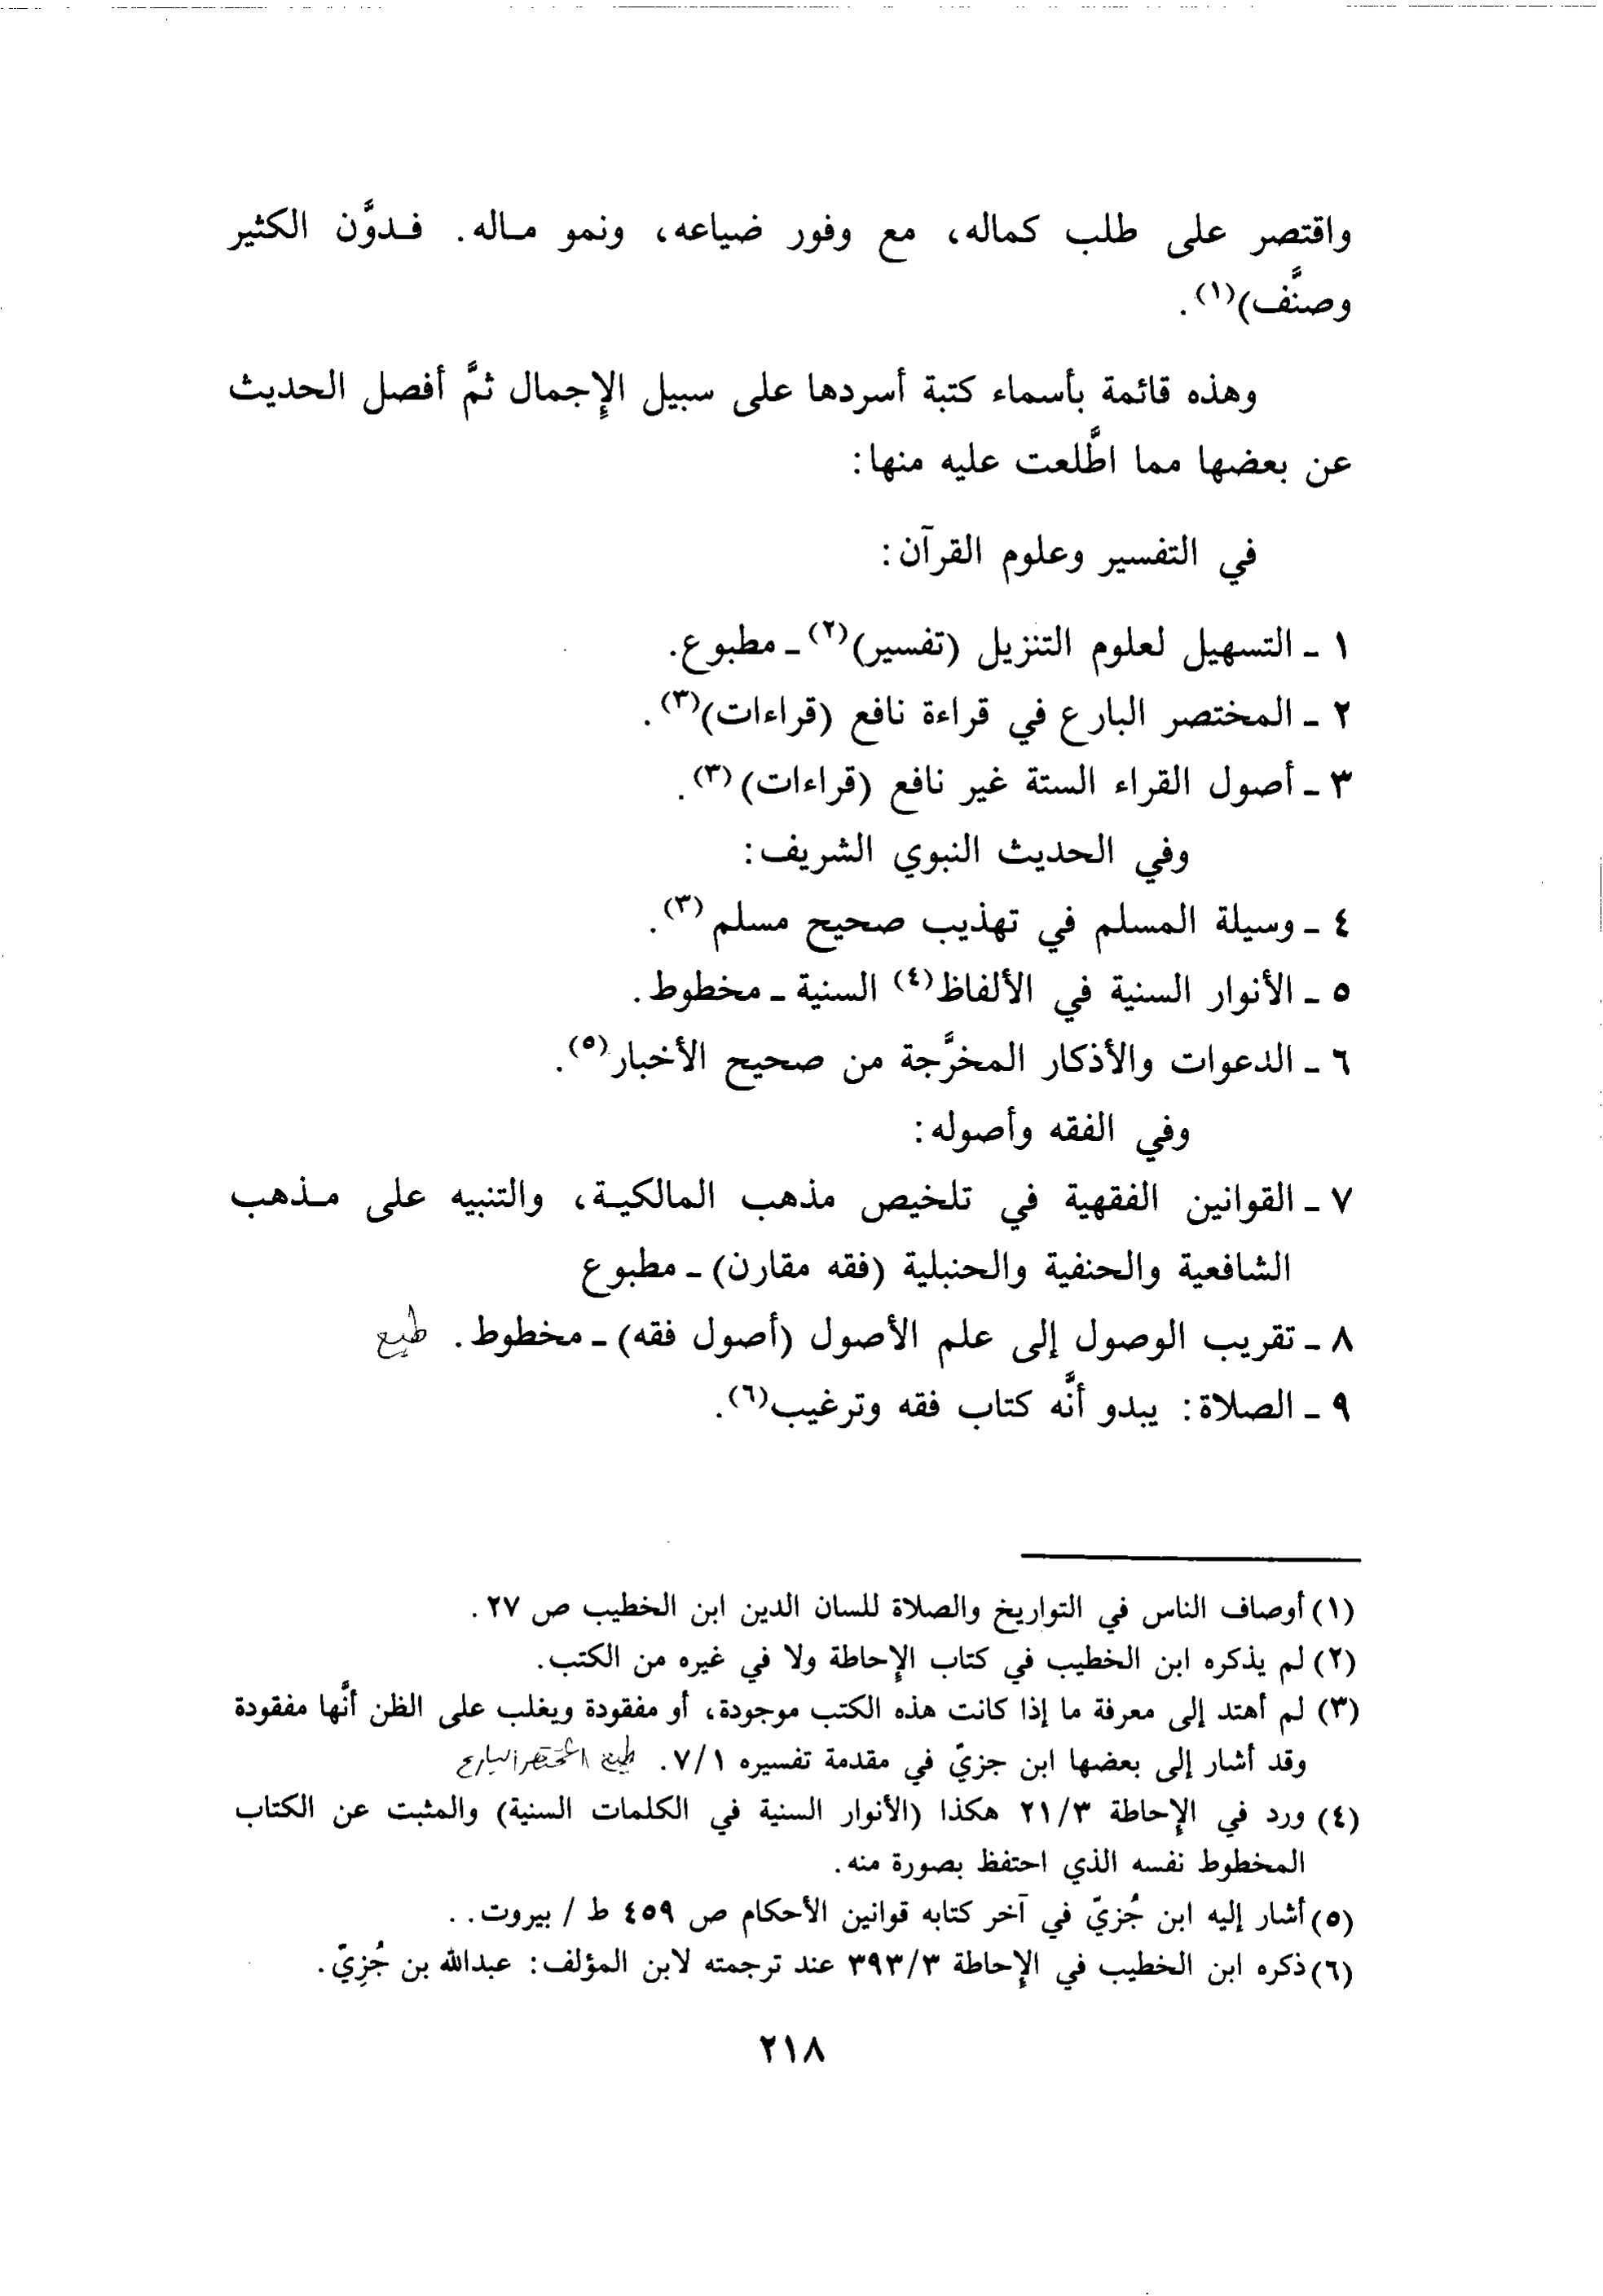 واقتصر على طلب كماله، مع وفور ضياعه، ونمو مـاله. فـدوَّن الكثير
وصنَّف)(١).
وهذه قائمة بأسماء كتبة أسردها على سبيل الإجمال ثمَّ أفصل الحديث
عن بعضها مما اطَّلعت عليه منها:
في التفسير وعلوم القرآن:
١ - التسهيل لعلوم التنزيل (تفسير)(٢) - مطبوع.
٢ - المختصر البارع في قراءة نافع (قراءات)(٣).
٣ - أصول القراء الستة غير نافع (قراءات)(٣).
وفي الحديث النبوي الشريف:
٤ - وسيلة المسلم في تهذيب صحيح مسلم(٣).
٥ - الأنوار السنية في الألفاظ(٤) السنية - مخطوط.
٦ - الدعوات والأذكار المخرَّجة من صحيح الأخبار(٥).
وفي الفقه وأصوله:
٧ - القوانين الفقهية في تلخيص مذهب المالكيـة، والتنبيه على مـذهب
الشافعية والحنفية والحنبلية (فقه مقارن) - مطبوع
٨ - تقريب الوصول إلى علم الأصول (أصول فقه) - مخطوط. طبع
٩ - الصلاة: يبدو أنَّه كتاب فقه وترغيب(٦).
(١) أوصاف الناس في التواريخ والصلاة للسان الدين ابن الخطيب ص ٢٧.
(٢) لم يذكره ابن الخطيب في كتاب الإحاطة ولا في غيره من الكتب.
(٣) لم أهتد إلى معرفة ما إذا كانت هذه الكتب موجودة، أو مفقودة ويغلب على الظن أنَّها مفقودة
وقد أشار إلى بعضها ابن جزيّ في مقدمة تفسيره ٧/١. طبع المختصر البارع
(٤) ورد في الإحاطة ٢١/٣ هكذا (الأنوار السنية في الكلمات السنية) والمثبت عن الكتاب
المخطوط نفسه الذي احتفظ بصورة منه.
(٥) أشار إليه ابن جُزيّ في آخر كتابه قوانين الأحكام ص ٤٥٩ ط / بيروت..
(٦) ذكره ابن الخطيب في الإحاطة ٣٩٣/٣ عند ترجمته لابن المؤلف: عبدالله بن جُزِيّ.
٢١٨